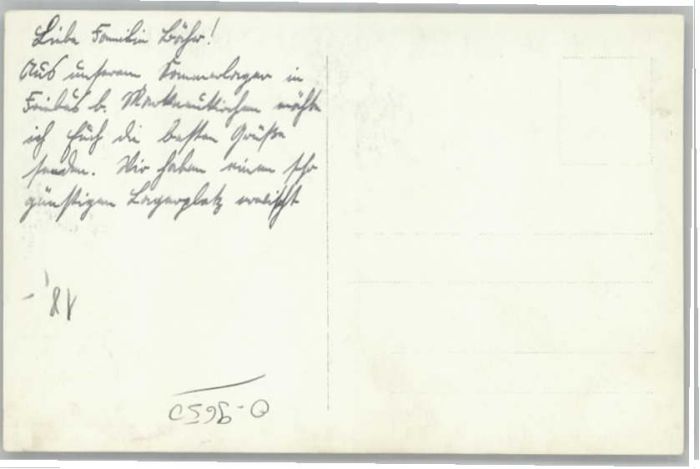 Liebe Familie Böhr!
Aus unserem Sommerlager in
b. Markneukirchen möchte
ich Euch die besten Grüße
senden. Wir haben einen sehr
günstigen Lagerplatz erwischt
18,-
O-9650